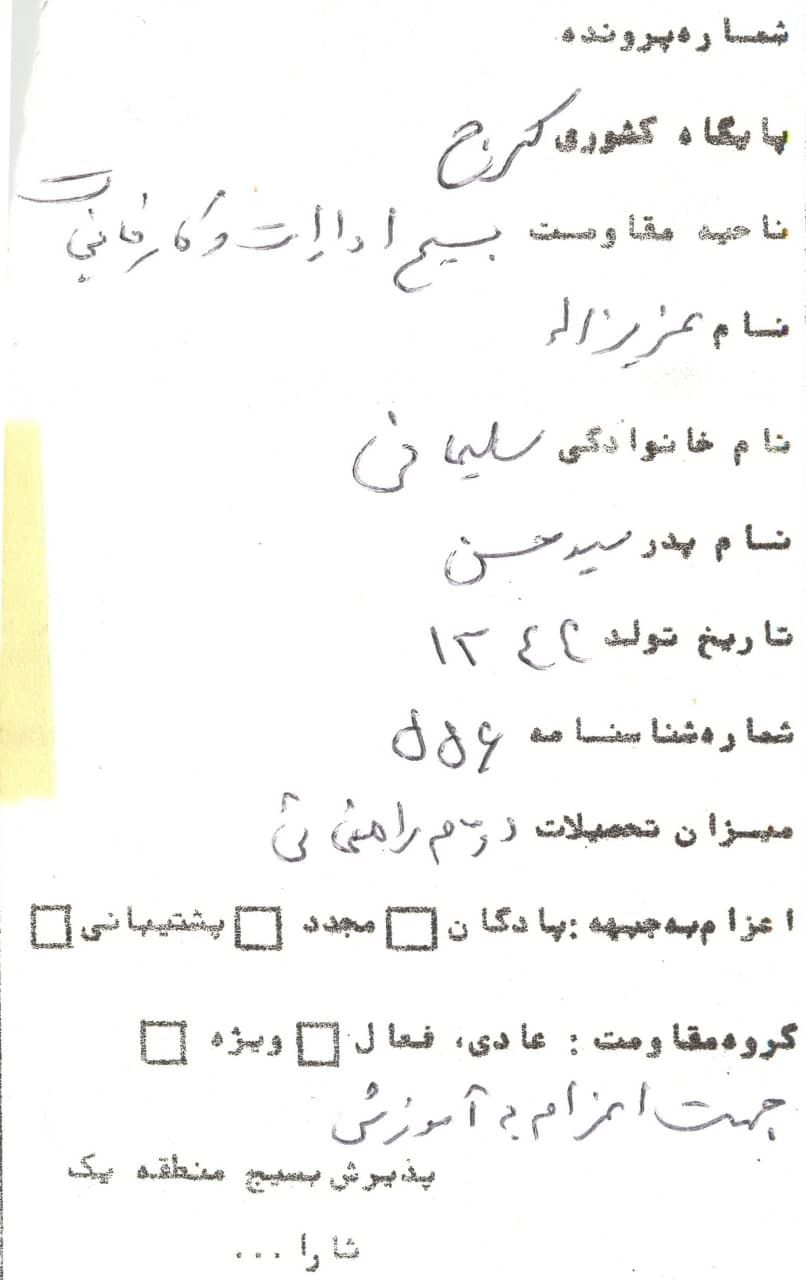 شماره پرونده
پایگاه کشوری کرج
ناحیه مقاومت بسیج ادارات و کارخانجات
نام عزیزاله
نام خانوادگی سلیمانی
نام پدر سیدحسن
تاریخ تولد ۱۳۴۲
شماره شناسنامه ۵۵۶
میزان تحصیلات دوم راهنمائی
اعزام به جبهه: پادگان □ مجدد □ پشتیبانی □
گروه مقاومت: عادی، فعال □ ویژه □
جهت اعزام به آموزش
پذیرش بسیج منطقه یک
ثارا...